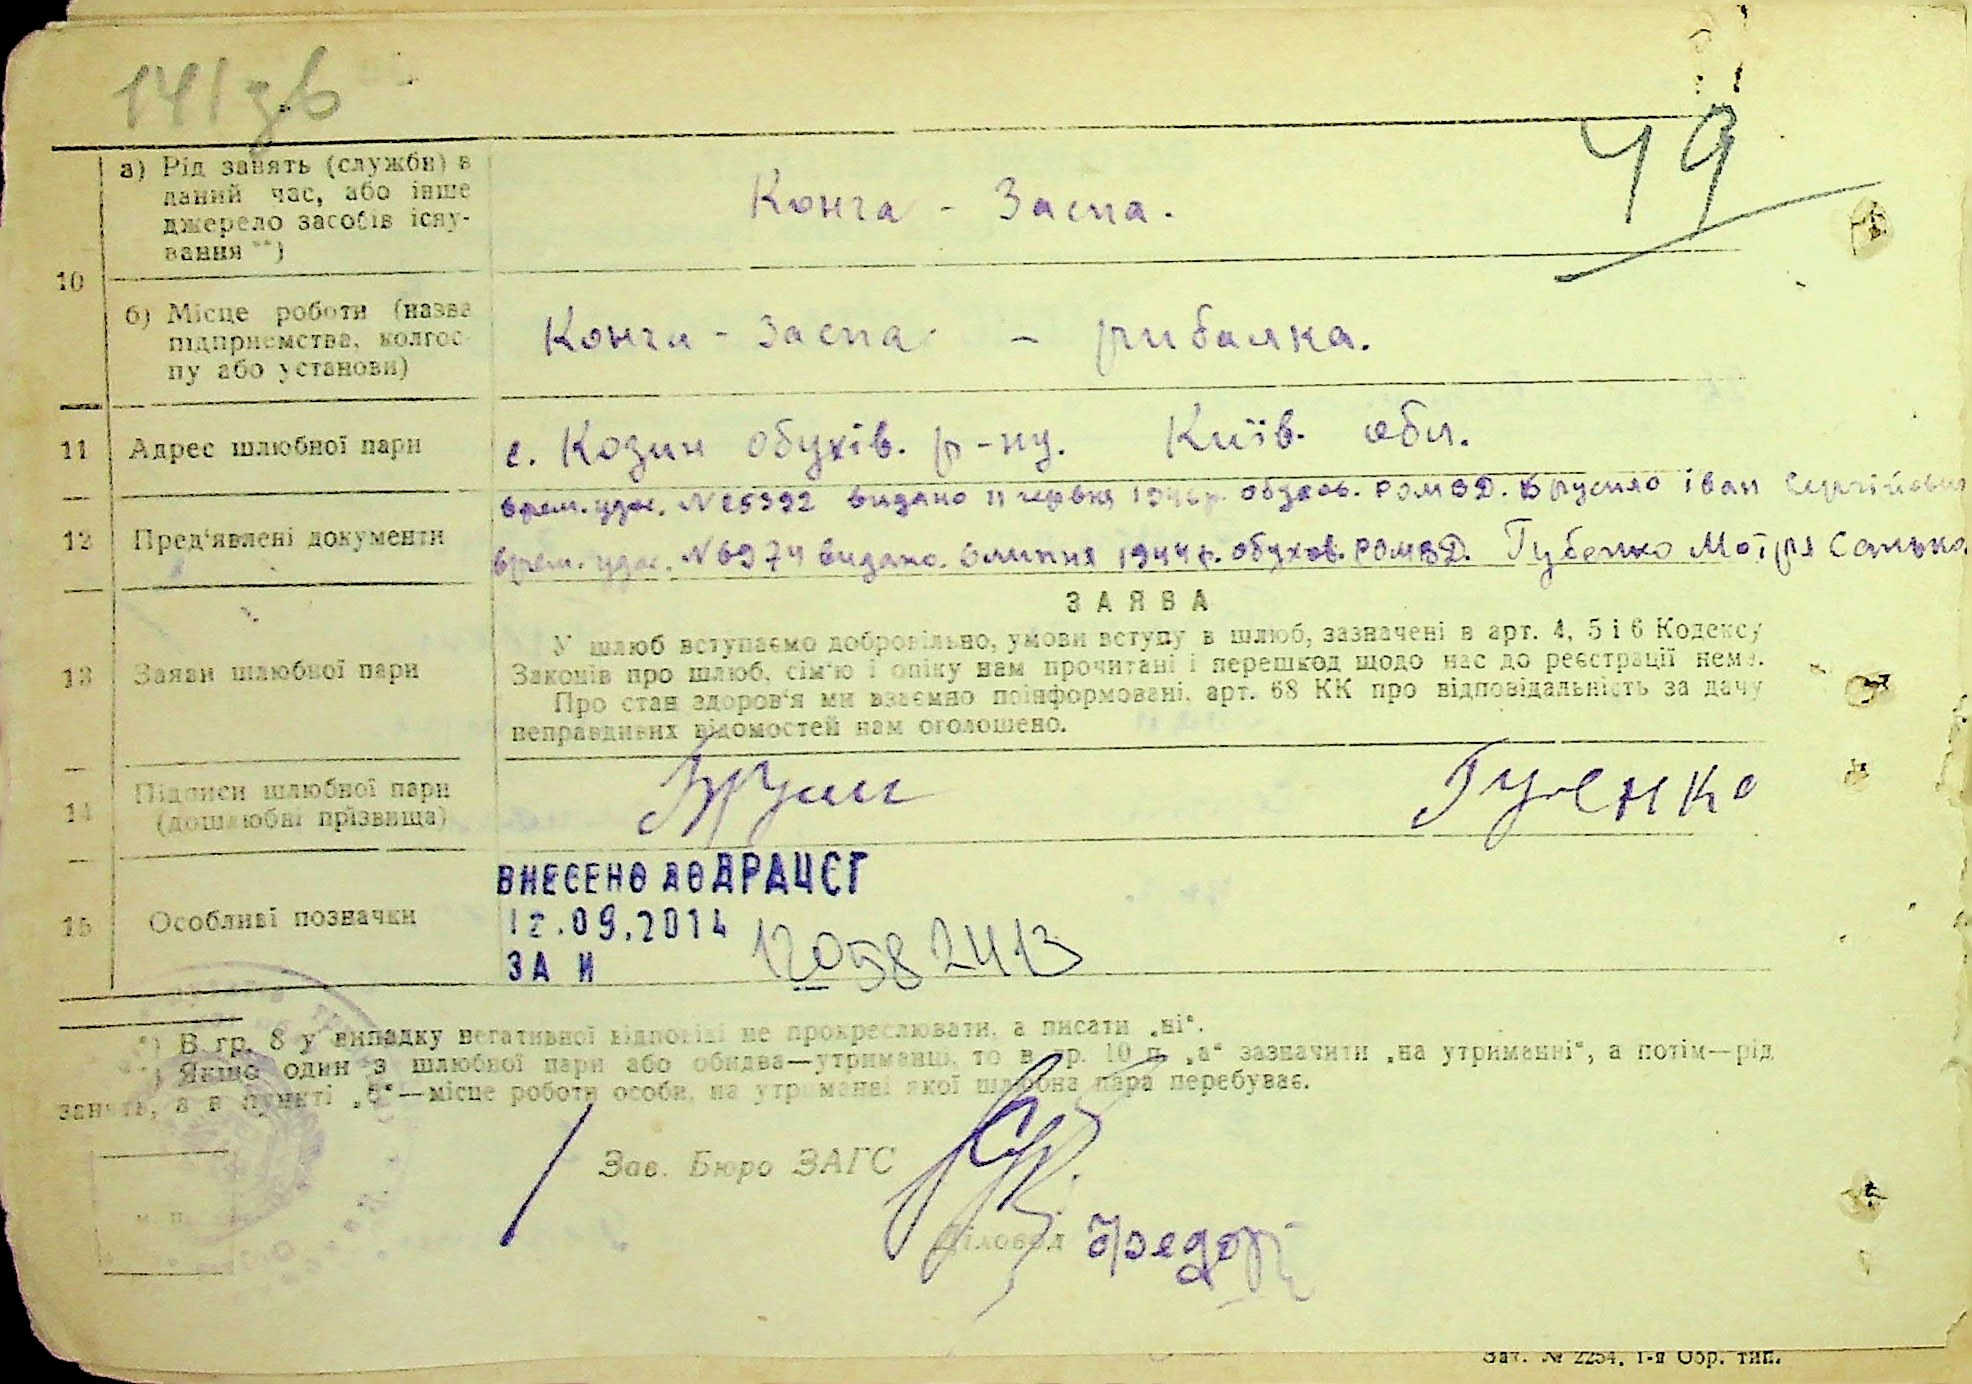 141 зв
49
а) Рід занять (служби) в
даний час, або інше
джерело засобів існу-
вання **)
Конча - Заспа.
10
б) Місце роботи (назва
підприємства, колгос-
пу або установи)
Конча - Заспа - рибалка.
11 Адрес шлюбної пари
с. Козин обухів. р-ну. Київ. обл.
12 Пред'явлені документи
врем. удос. N 25392 видано 11 червня 1946 р. обухов. РОМВД. Брусило Іван Сергійович
врем. удос. N 6974 видано. липня 1944 р. обухов. РОМВД. Губенко Мотря
13 Заяви шлюбної пари
ЗАЯВА
У шлюб вступаємо добровільно, умови вступу в шлюб, зазначені в арт. 4, 5 і 6 Кодексу
Законів про шлюб, сім'ю і опіку нам прочитані і перешкод щодо нас до реєстрації нема.
Про стан здоров'я ми взаємно поінформовані, арт. 68 КК про відповідальність за дачу
неправдивих відомостей нам оголошено.
14 Підписи шлюбної пари
(дошлюбні прізвища)
15 Особливі позначки
ВНЕСЕНО ДО ДРАЦСГ
12.09.2014
ЗА И 120582413
*) В гр. 8 у випадку негативної відповіді не прокреслювати, а писати „ні".
**) Якщо один з шлюбної пари або обидва—утриманці, то в гр. 10 п. „а" зазначити „на утриманні", а потім—рід
занять, а в пункті „б"—місце роботи особи, на утриманні якої шлюбна пара перебуває.
Зав. Бюро ЗАГС
Діловод
Зак. № 2254, 1-я Обр. тип.